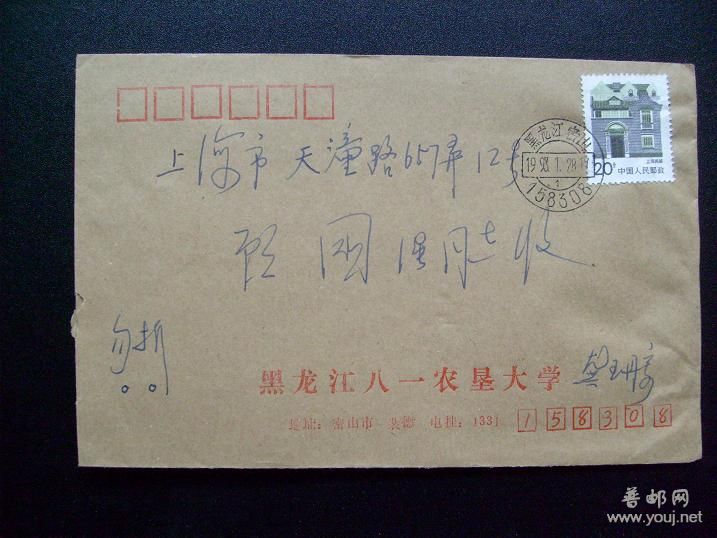 上海市天潼路657弄12号
黑龙江密山
1993.1.28.17
1
158308
上海民居
20分 中国人民邮政
顾国强同志收
勿折!!
黑龙江八一农垦大学 龚
地址：密山市 裴德 电挂：1331 158308
普邮网
www.youj.net